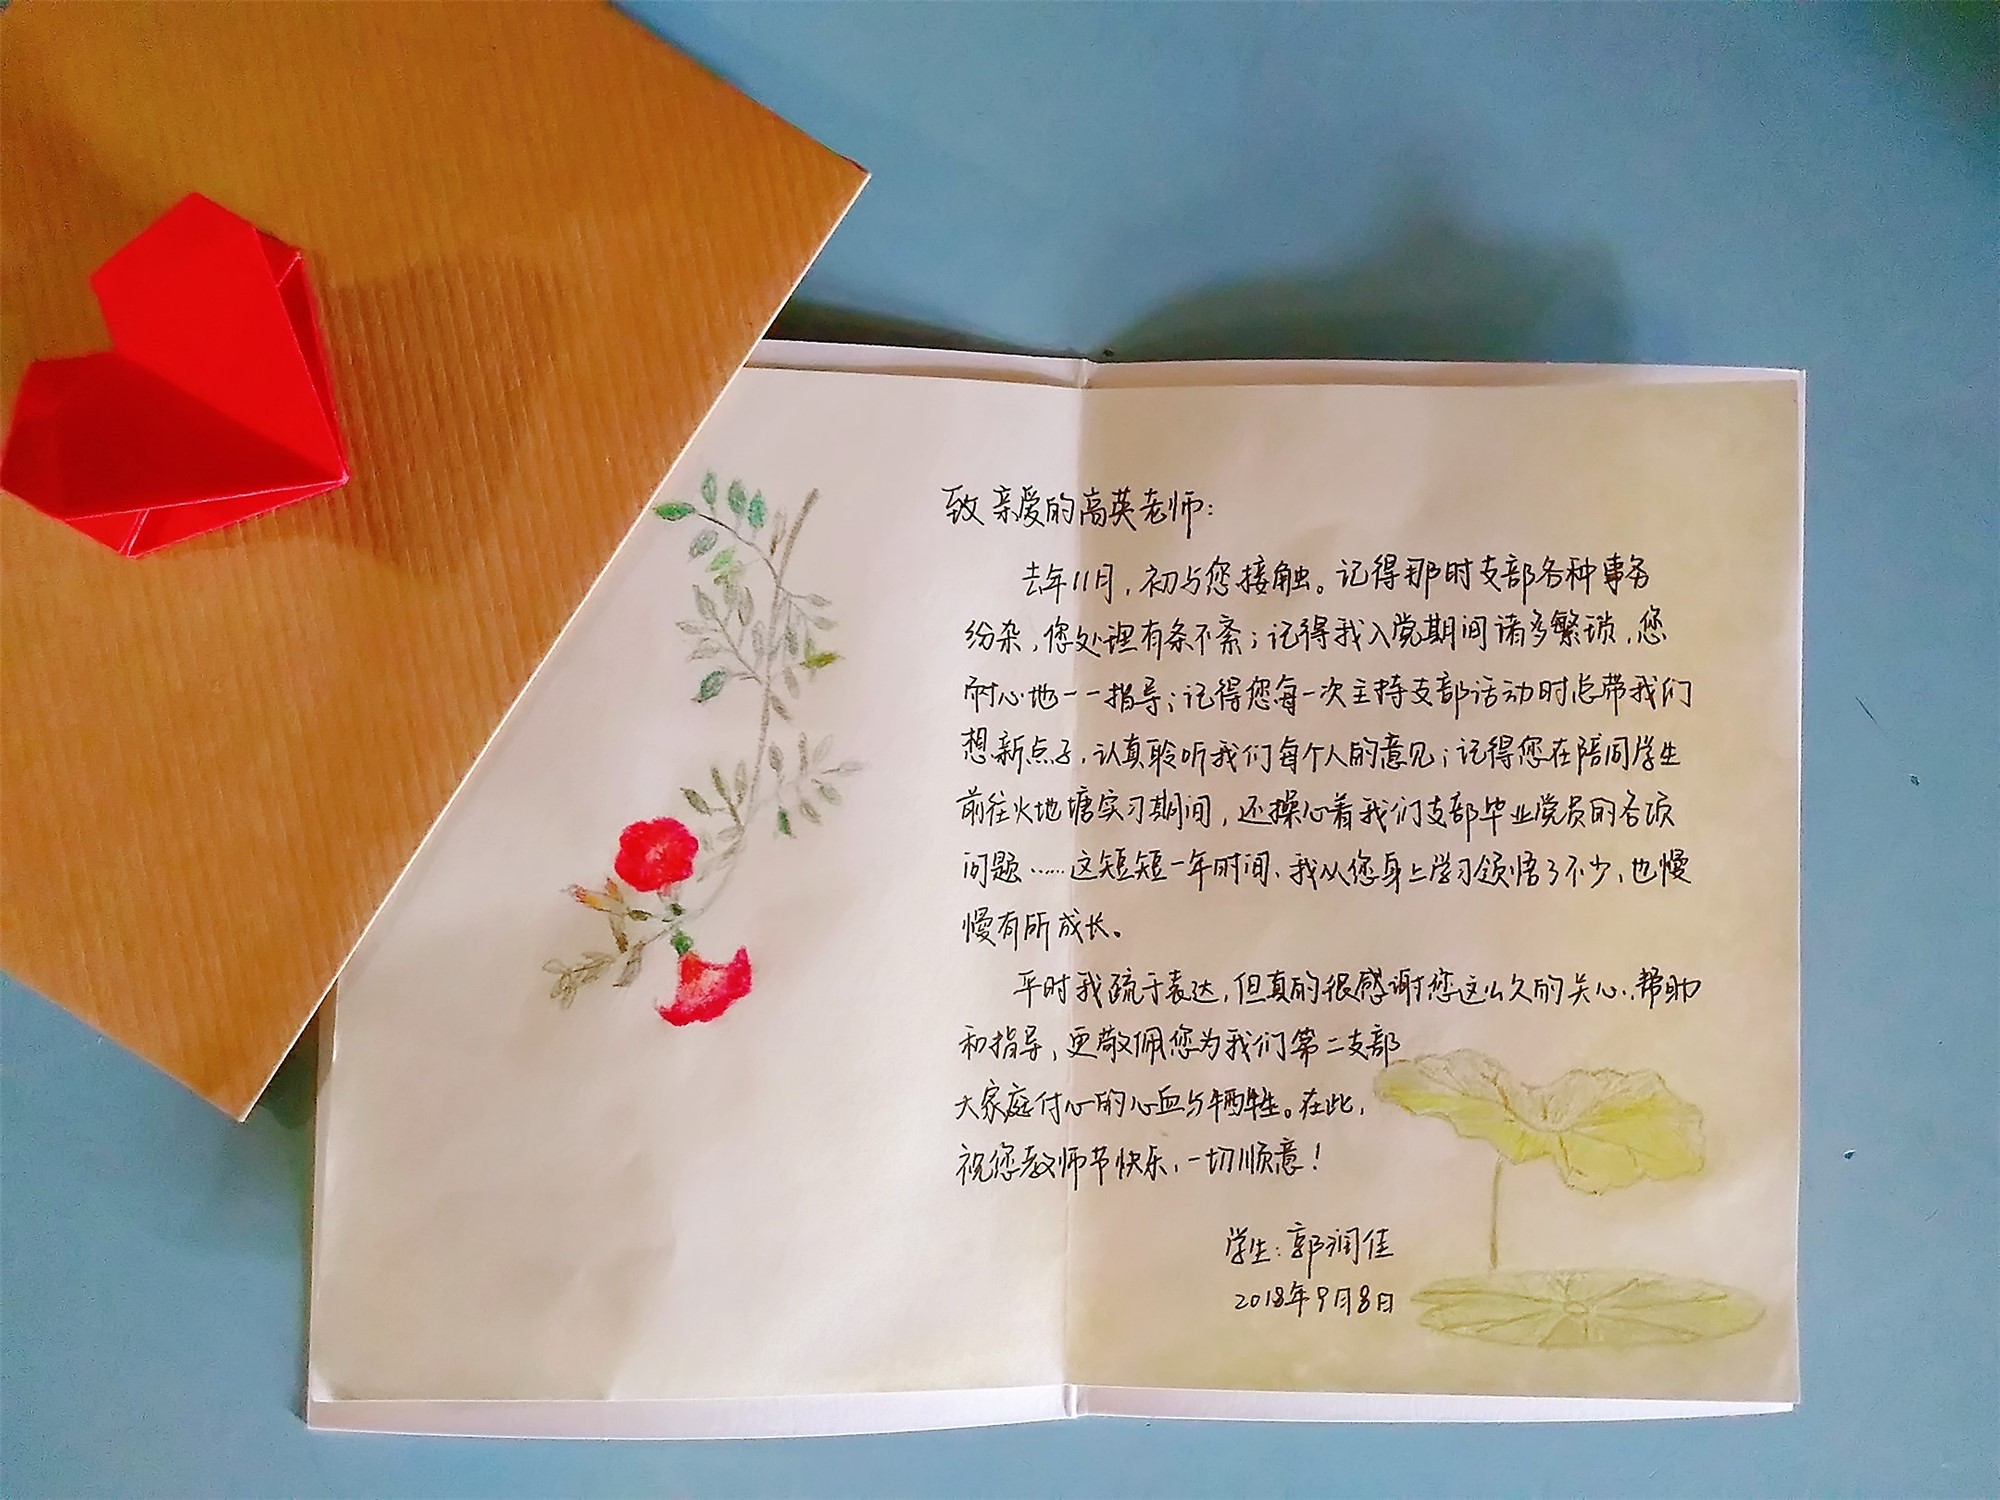 致亲爱的高英老师：
去年11月，初与您接触。记得那时支部各种事务
纷杂，您处理有条不紊；记得我入党期间诸多繁琐，您
耐心地一一指导；记得您每一次主持支部活动时总带我们
想新点子，认真聆听我们每个人的意见；记得您在陪同学生
前往火地塘实习期间，还操心着我们支部毕业党员的各项
问题……这短短一年时间，我从您身上学习领悟了不少，也慢
慢有所成长。
平时我疏于表达，但真的很感谢您这么久的关心、帮助
和指导，更敬佩您为我们第二支部
大家庭付心的心血与牺牲。在此，
祝您教师节快乐，一切顺意！
学生：郭润佳
2018年9月8日